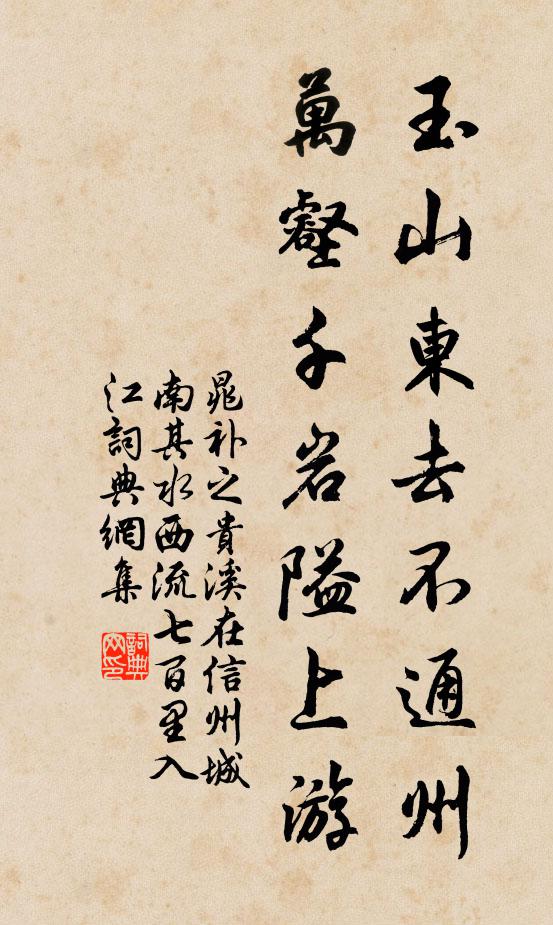 玉山東去不通州
萬壑千岩隘上游
晁补之貴溪在信州城
南其水西流七百里入
江詞典網集
詞典
网印